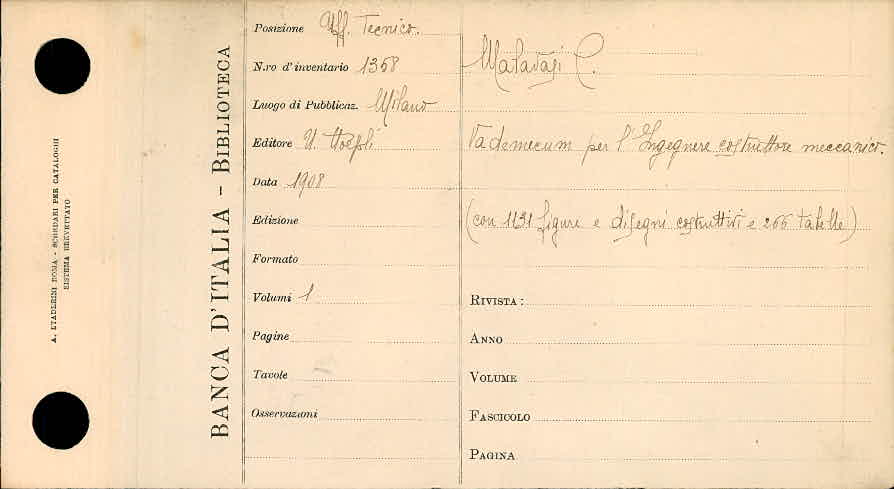 A. STADERINI ROMA - SCHEDARI PER CATALOGHI
SISTEMA BREVETTATO
BANCA D'ITALIA - BIBLIOTECA
Posizione Uff. Tecnico.
N.ro d'inventario 1358
Luogo di Pubblicaz. Milano
Editore U. Hoepli
Data 1908
Edizione
Formato
Volumi 1
Pagine
Tavole
Osservazioni
Malavasi C.
Vademecum per l'Ingegnere costruttore meccanico.
(con 1131 figure e disegni costruttivi e 266 tabelle)
RIVISTA:
ANNO
VOLUME
FASCICOLO
PAGINA